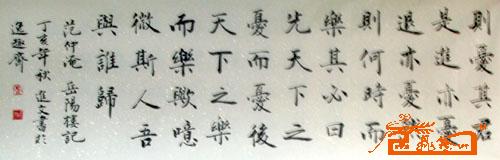 則憂其君
是進亦憂
退亦憂然
則何時而
樂其必曰
先天下之
憂而憂後
天下之樂
而樂歟噫
微斯人吾
與誰歸
范仲淹 岳陽樓記
丁亥年秋 進文書於
逸趣齋